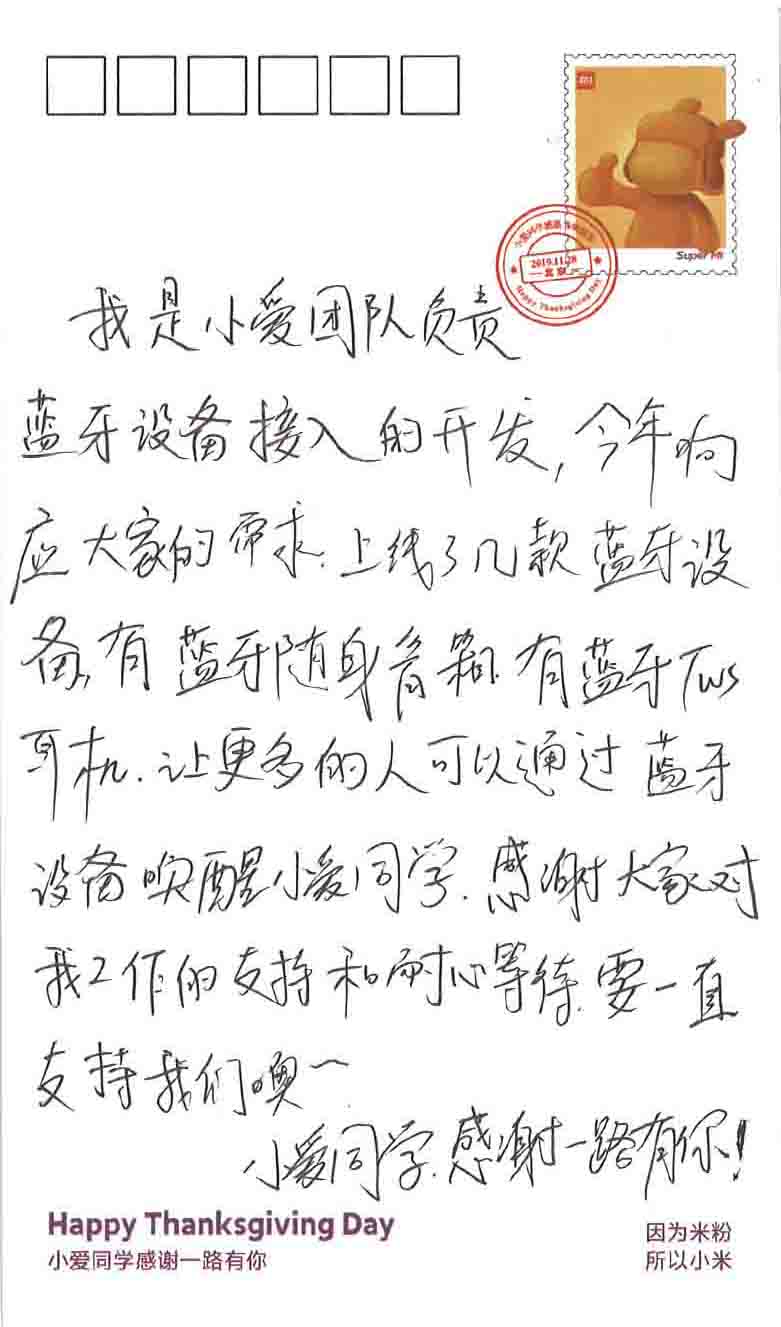 Super MI
2019.11.28
北京
Happy Thanksgiving Day
我是小爱团队负责
蓝牙设备接入的开发,今年响
应大家的需求.上线了几款蓝牙设
备,有蓝牙随身音箱.有蓝牙TWS
耳机.让更多的人可以通过蓝牙
设备唤醒小爱同学.感谢大家对
我工作的支持和耐心等待.要一直
支持我们噢~
小爱同学.感谢一路有你!
Happy Thanksgiving Day
小爱同学感谢一路有你
因为米粉
所以小米